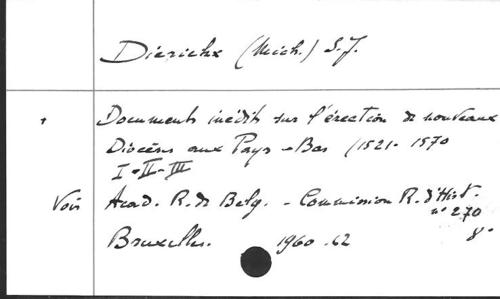 Dierickx (Mich.) S.J.
+ Documents inédits sur l'érection de nouveaux
Diocèses aux Pays-Bas (1521-1570
I-II-III
Voir Acad. R. de Belg. - Commission R. d'Hist.
n° 270
Bruxelles. 1960-62 8°